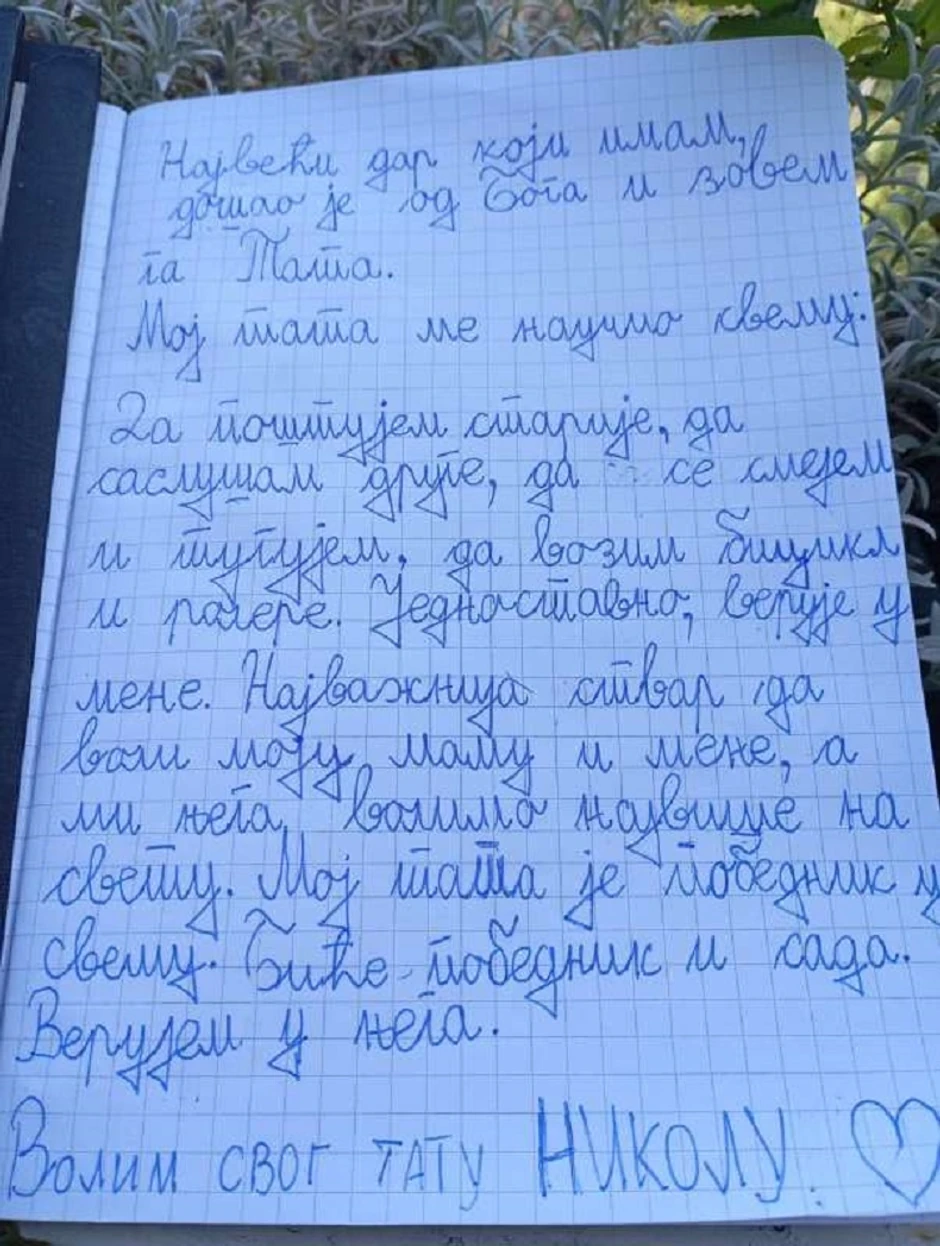 Највећи дар који имам,
дошао је од Бога и зовем
га Тата.
Мој тата ме научио свему:
Да поштујем старије, да
саслушам друге, да се смејем
и тугујем, да возим бицикл
и ролере. Једноставно, верује у
мене. Најважнија ствар да
воли моју маму и мене, а
ми њега волимо највише на
свету. Мој тата је победник у
свему. Биће победник и сада.
Верујем у њега.
Волим свог тату НИКОЛУ.